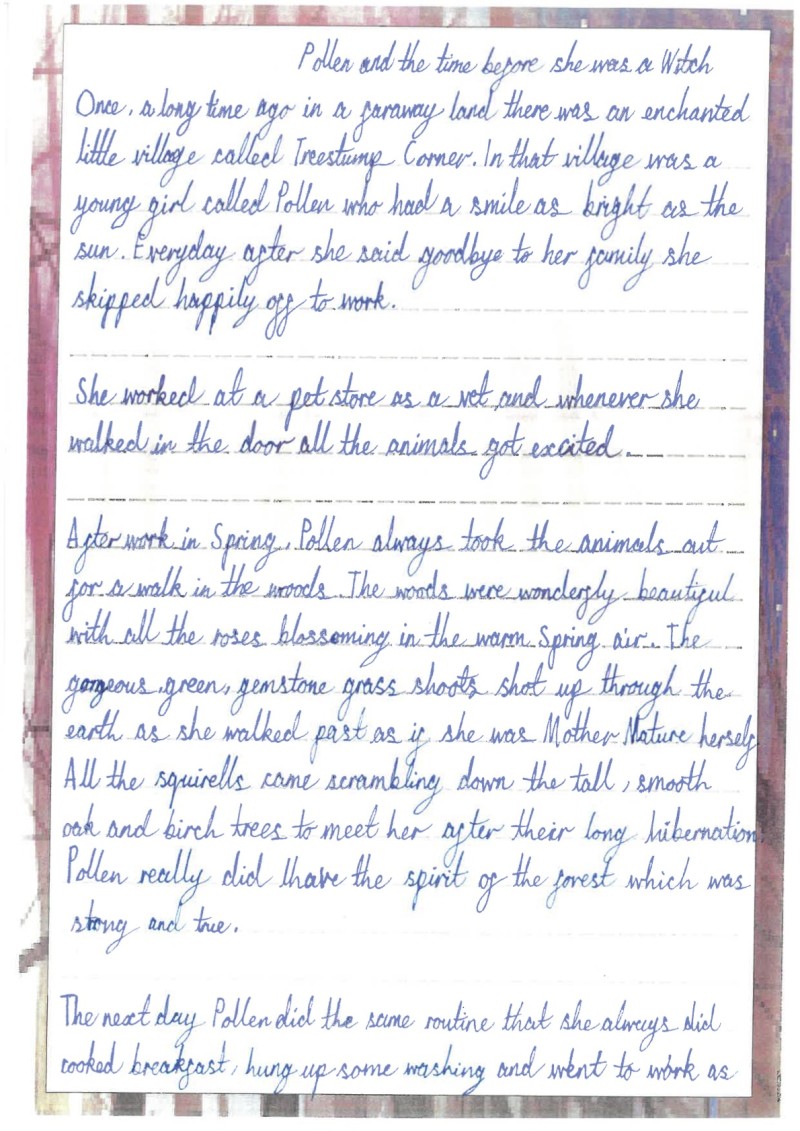 Pollen and the time before she was a Witch
Once, a long time ago in a faraway land there was an enchanted
little village called Treestump Corner. In that village was a
young girl called Pollen who had a smile as bright as the
sun. Everyday after she said goodbye to her family she
skipped happily off to work.
She worked at a pet store as a vet and whenever she
walked in the door all the animals got excited.
After work in Spring, Pollen always took the animals out
for a walk in the woods. The woods were wonderfly beautiful
with all the roses blossoming in the warm Spring air. The
gorgeous, green, gemstone grass shoots shot up through the
earth as she walked past as if she was Mother Nature herself
All the squirells came scrambling down the tall, smooth
oak and birch trees to meet her after their long hibernation.
Pollen really did have the spirit of the forest which was
stong and true.
The next day Pollen did the same routine that she always did
cooked breakfast, hung up some washing and went to work as